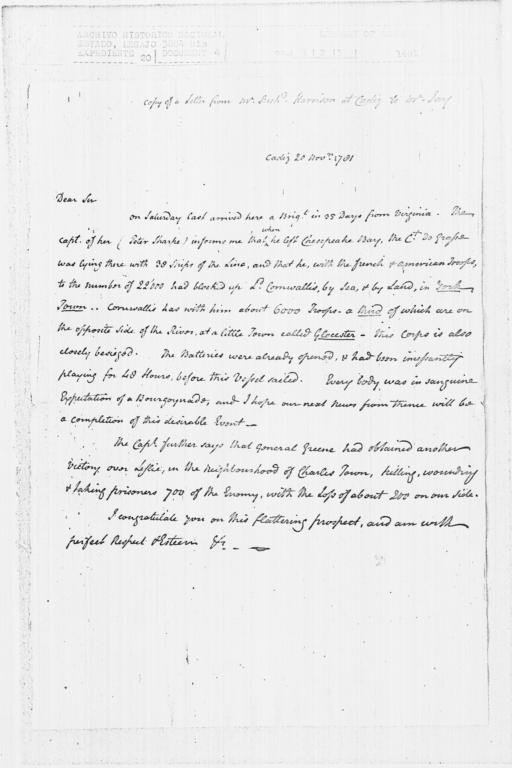 ARCHIVO HISTORICO NACIONAL
ESTADO, LEGAJO 3884 BIS
EXPEDIENTE 20 DOCUMENT 4
copy of a Letter from Mr. Richd. Harrison at Cadiz to Mr. Jay
Cadiz 20 Novr. 1781
Dear Sir
on Saturday last arrived here a Brigt. in 35 Days from Virginia. The
capt. of her (Peter Sharke) informs me that when he left Chesepeake Bay, the Ct. De Grasse
was lying there with 38 Ships of the Line, and that he, with the french & american Troops,
to the number of 22'000 had blocked up Ld. Cornwallis, by Sea, & by Land, in York
Town.. Cornwallis has with him about 6000 Troops. a third of which are on
the opposite Side of the River, at a little Town called Glocester - this Corps is also
closely besieged. The Batteries were already opened, & had been incessantly
playing for 48 Hours, before this Vessel sailed. Every body was in sanguine
Expectation of a Bourgoynade, and I hope our next News from thence will be
a completion of this desirable Event _
The Capt. further says that General Greene had obtained another
Victory over Leslie, in the Neighbourhood of Charles Town, killing, wounding
& taking prisoners 700 of the Enemy, with the Loss of about 200 on our Side.
I congratulate you on this flattering prospect, and am with
perfect Respect & Esteem &c. _